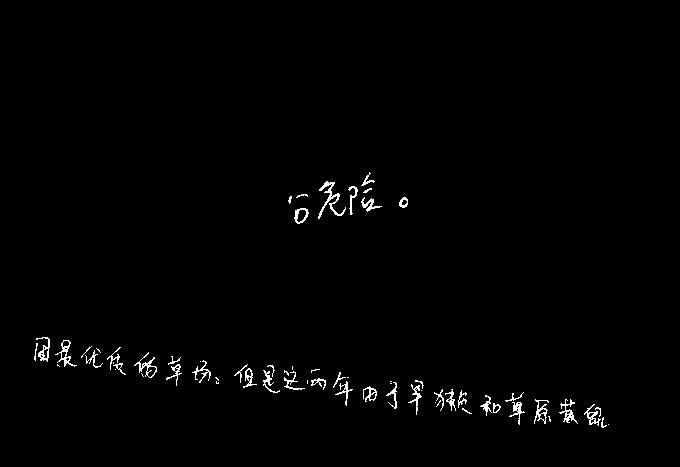 谷危险。
国最优质的草场。但是这两年由于旱獭和草原黄鼠